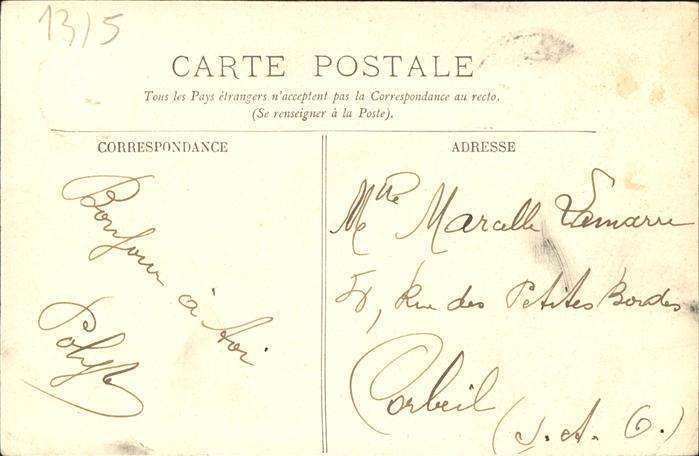 13/5
CARTE POSTALE
Tous les Pays étrangers n'acceptent pas la Correspondance au recto.
(Se renseigner à la Poste).
CORRESPONDANCE
Bonjour à toi
ADRESSE
Mlle Marcelle Lamarre
Rue des Petites Bordes
Corbeil
(S. et O.)